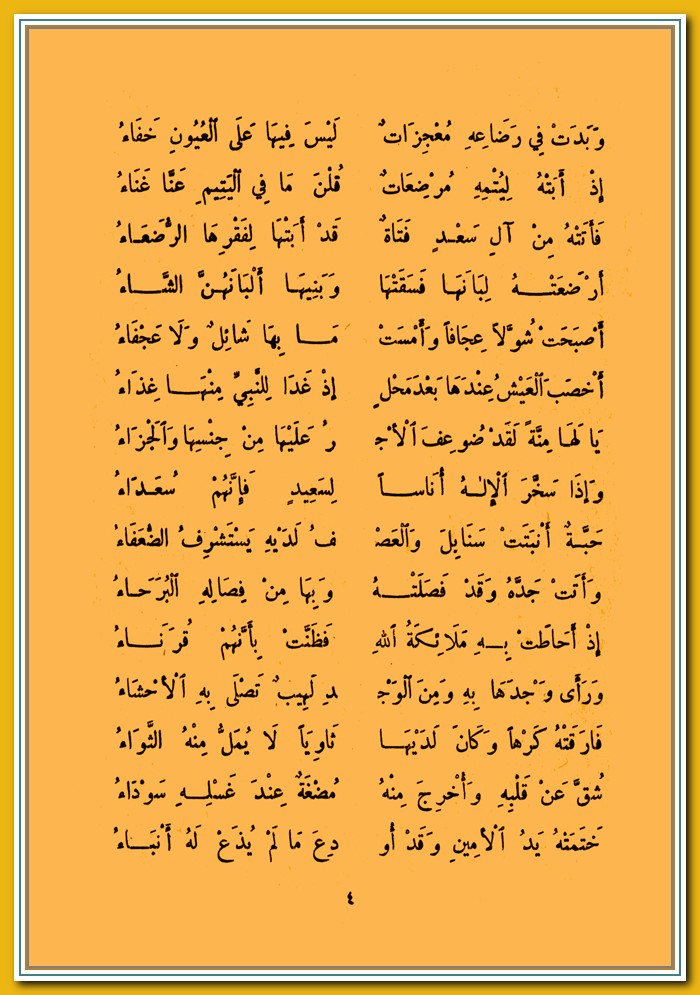 وَبَدَتْ فِي رَضَاعِهِ مُعْجِزَاتٌ لَيْسَ فِيهَا عَلَى ٱلْعُيُونِ خَفَاءُ
إِذْ أَبَتْهُ لِيُتْمِهِ مُرْضِعَاتٌ قُلْنَ مَا فِي ٱلْيَتِيمِ عَنَّا غَنَاءُ
فَأَتَتْهُ مِنْ آلِ سَعْدٍ فَتَاةٌ قَدْ أَبَتْهَا لِفَقْرِهَا الرُّضَعَاءُ
أَرْضَعَتْهُ لِبَانَهَا فَسَقَتْهَا وَبَنِيهَا أَلْبَانَهُنَّ الشَّاءُ
أَصْبَحَتْ شُوَّلاً عِجَافاً وَأَمْسَتْ مَا بِهَا شَائِلٌ وَلَا عَجْفَاءُ
أَخْصَبَ ٱلْعَيْشُ عِنْدَهَا بَعْدَ مَحْلٍ إِذْ غَدَا لِلنَّبِيِّ مِنْهَا غِذَاءُ
يَا لَهَا مِنَّةً لَقَدْ ضُوعِفَ ٱلْأَجْـ ـرُ عَلَيْهَا مِنْ جِنْسِهَا وَٱلْجَزَاءُ
وَإِذَا سَخَّرَ ٱلْإِلٰهُ أُنَاساً لِسَعِيدٍ فَإِنَّهُمْ سُعَدَاءُ
حَبَّةٌ أَنْبَتَتْ سَنَابِلَ وَٱلْعَصْـ ـفُ لَدَيْهِ يَسْتَشْرِفُ الضُّعَفَاءُ
وَأَتَتْ جَدَّهُ وَقَدْ فَصَلَتْهُ وَبِهَا مِنْ فِصَالِهِ ٱلْبُرَحَاءُ
إِذْ أَحَاطَتْ بِهِ مَلَائِكَةُ ٱللهِ فَظَنَّتْ بِأَنَّهُمْ قُرَنَاءُ
وَرَأَى وَجْدَهَا بِهِ وَمِنَ ٱلْوَجْـ ـدِ لَهِيبٌ تَصْلَى بِهِ ٱلْأَحْشَاءُ
فَارَقَتْهُ كَرْهاً وَكَانَ لَدَيْهَا ثَاوِيَاً لَا يُمَلُّ مِنْهُ الثَّوَاءُ
شُقَّ عَنْ قَلْبِهِ وَأُخْرِجَ مِنْهُ مُضْغَةٌ عِنْدَ غَسْلِهِ سَوْدَاءُ
خَتَمَتْهُ يَدُ ٱلْأَمِينِ وَقَدْ أُو دِعَ مَا لَمْ يُذَعْ لَهُ أَنْبَاءُ
٤